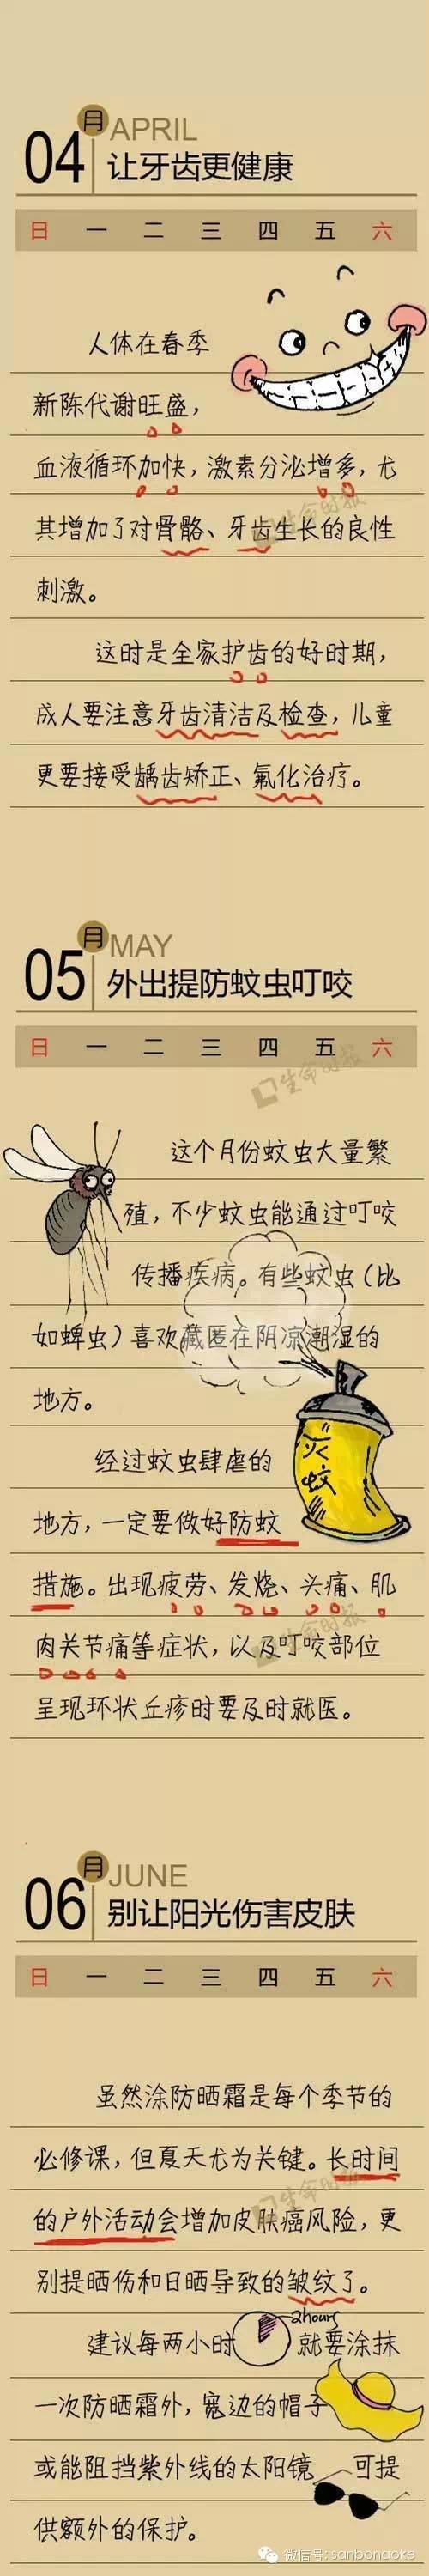 04月 APRIL
让牙齿更健康
日 一 二 三 四 五 六
人体在春季
新陈代谢旺盛，
血液循环加快，激素分泌增多，尤
其增加了对骨骼、牙齿生长的良性
刺激。
生命时报
这时是全家护齿的好时期，
成人要注意牙齿清洁及检查，儿童
更要接受龋齿矫正、氟化治疗。
05月 MAY
外出提防蚊虫叮咬
日 一 二 三 四 五 六
生命时报
这个月份蚊虫大量繁
殖，不少蚊虫能通过叮咬
传播疾病。有些蚊虫（比
如蜱虫）喜欢藏匿在阴凉潮湿的
地方。
灭蚊
经过蚊虫肆虐的
地方，一定要做好防蚊
措施。出现疲劳、发烧、头痛、肌
肉关节痛等症状，以及叮咬部位
生命时报
呈现环状丘疹时要及时就医。
06月 JUNE
别让阳光伤害皮肤
日 一 二 三 四 五 六
虽然涂防晒霜是每个季节的
必修课，但夏天尤为关键。长时间
的户外活动会增加皮肤癌风险，更
生命时报
别提晒伤和日晒导致的皱纹了。
2hours
建议每两小时就要涂抹
一次防晒霜外，宽边的帽子
或能阻挡紫外线的太阳镜可提
供额外的保护。
微信号: sanbonaoke